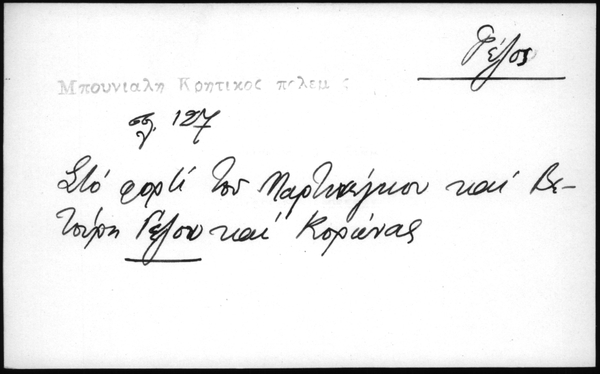 Γέλος
Μπουνιαλη Κρητικος πολεμ ς
σλ. 127
Στό φορτί του Μαρτινέγκου καί Βε-
τούρη Γέλου καί Κοριάνας